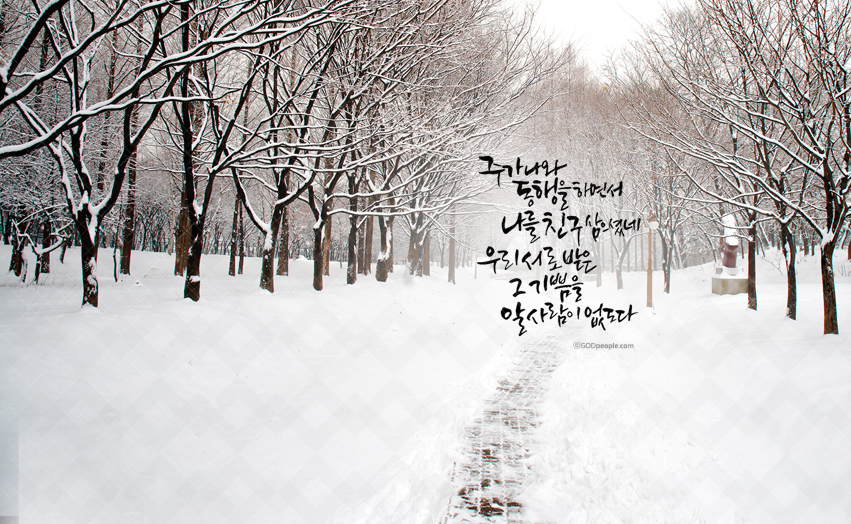 주가 나와
동행을 하면서
나를 친구 삼으셨네
우리 서로 받은
그 기쁨을
알 사람이 없도다
ⓒGODpeople.com